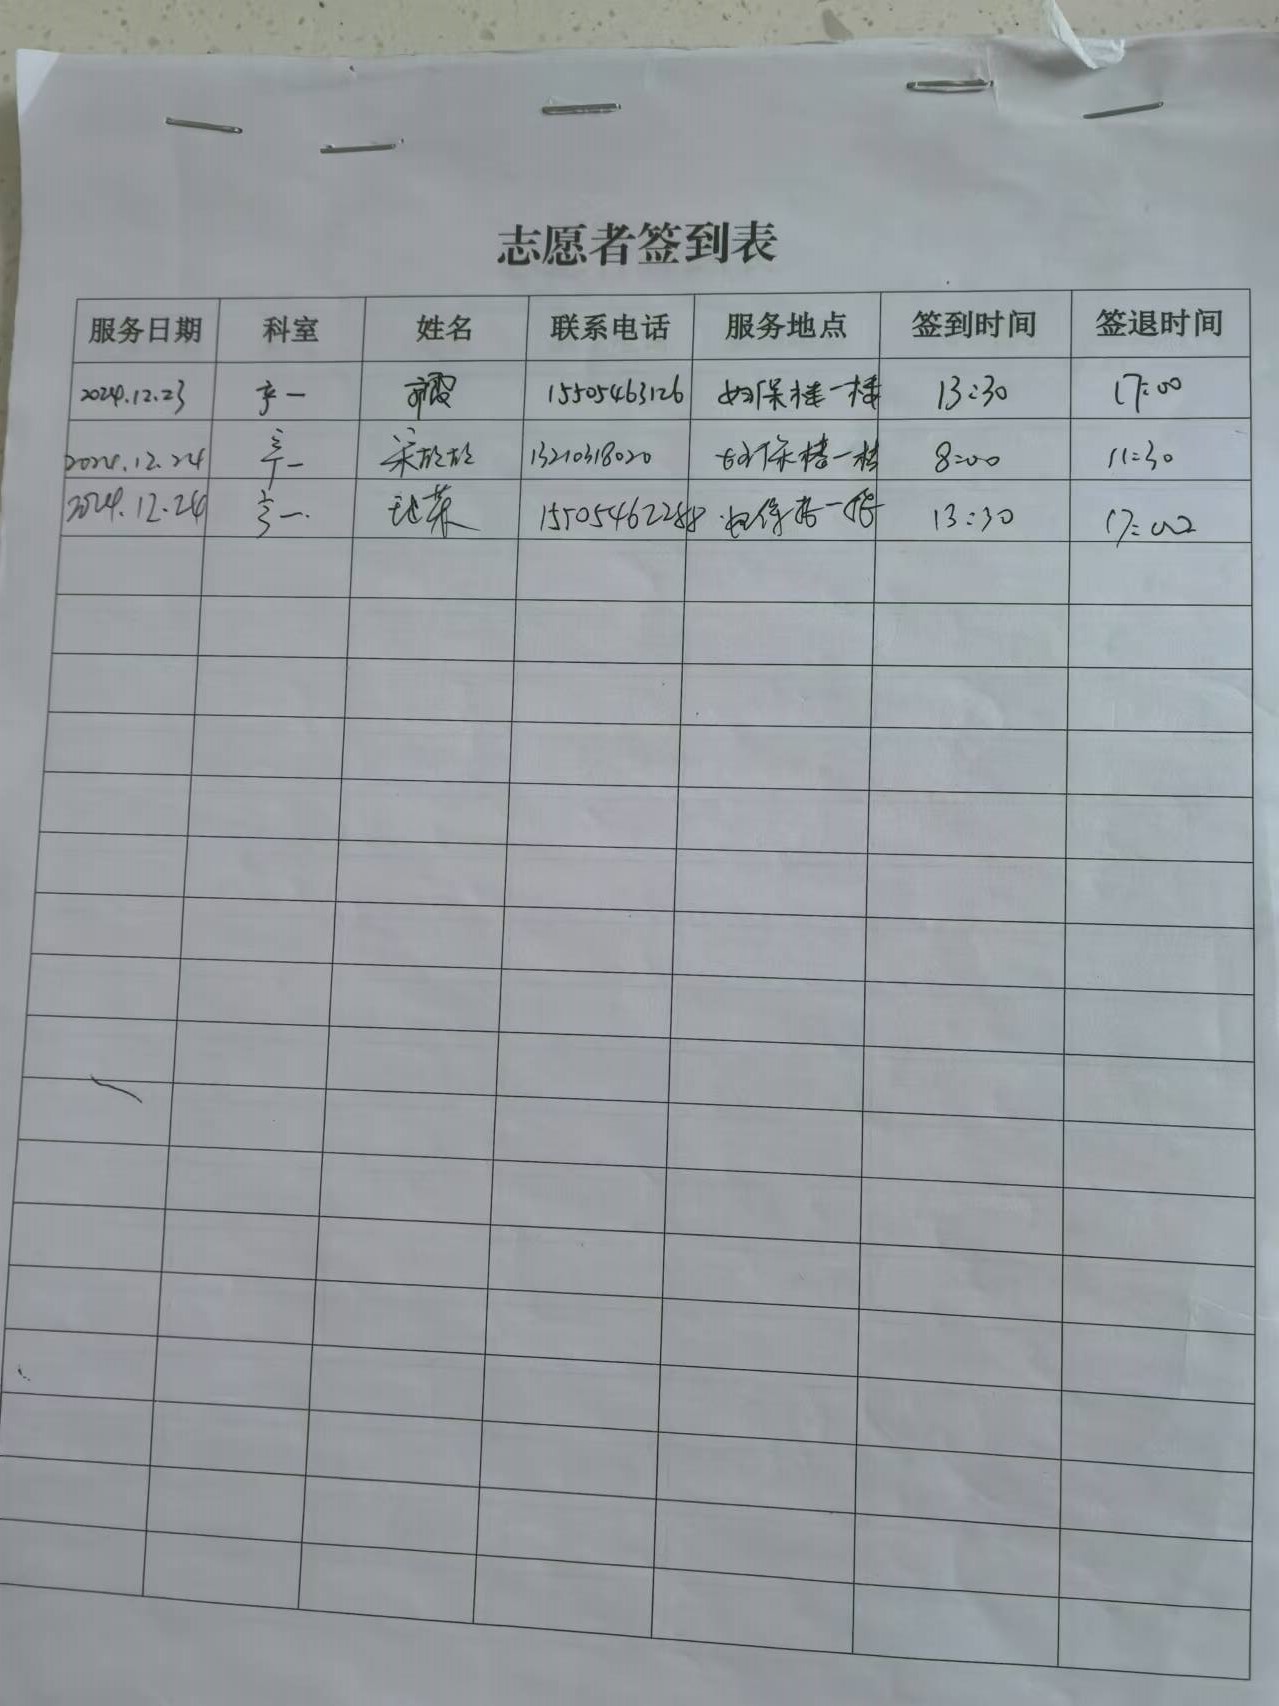 志愿者签到表
服务日期 科室 姓名 联系电话 服务地点 签到时间 签退时间
2024.12.23 产一 15505463126 妇保楼一楼 13:30 17:00
2024.12.24 产一 宋欣欣 13210318020 妇保楼一楼 8:00 11:30
2024.12.24 产一 15505462288 妇保楼一楼 13:30 17:00